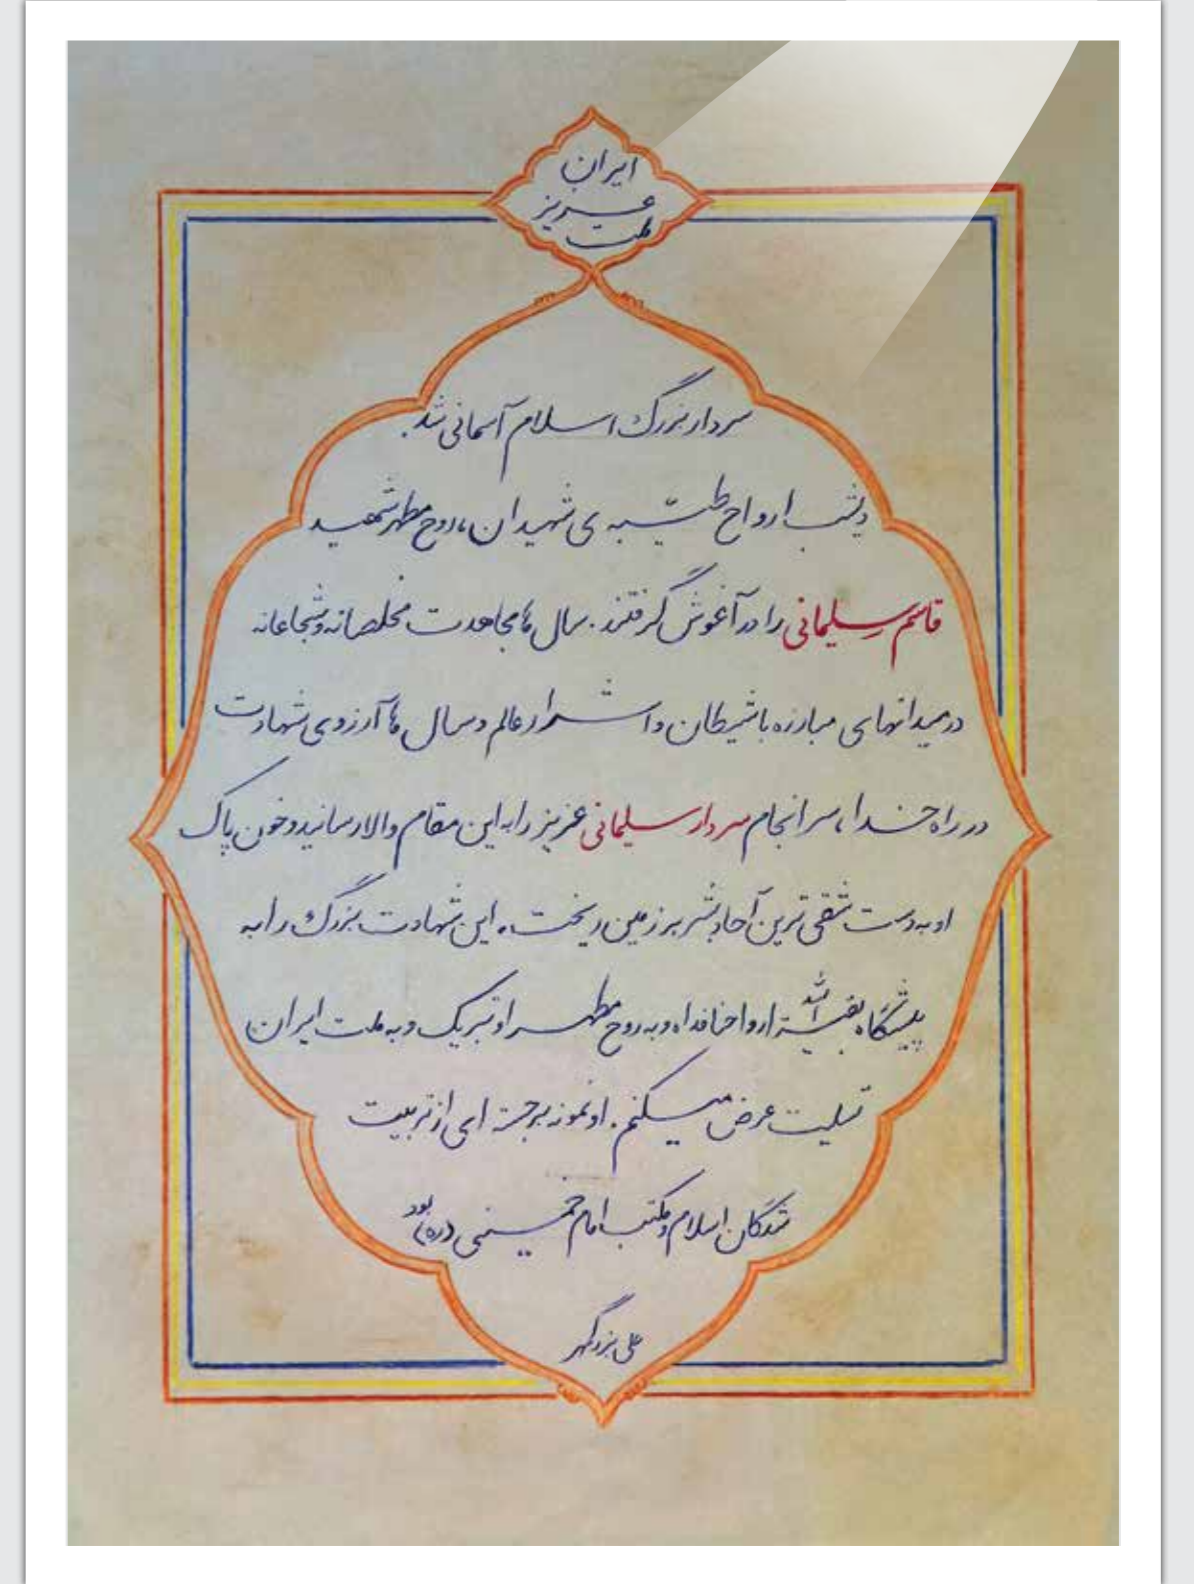 ایران
عزیز
ملت
سردار بزرگ اسلام آسمانی شد.
دیشب ارواح طیّبه ی شهیدان، روح مطهر شهید
قاسم سلیمانی را در آغوش گرفتند. سال ها مجاهدت مخلصانه و شجاعانه
در میدانهای مبارزه با شیطان و اشرار عالم و سال ها آرزوی شهادت
در راه خدا، سرانجام سردار سلیمانی عزیز را به این مقام والا رسانید و خون پاک
او به دست شقی ترین آحاد بشر بر زمین ریخت. این شهادت بزرگ را به
پیشگاه بقیة الله ارواحنا فداه و به روح مطهر او تبریک و به ملت ایران
تسلیت عرض میکنم. او نمونه برجسته ای از تربیت
شدگان اسلام و مکتب امام خمینی (ره) بود
علی بزرگمهر